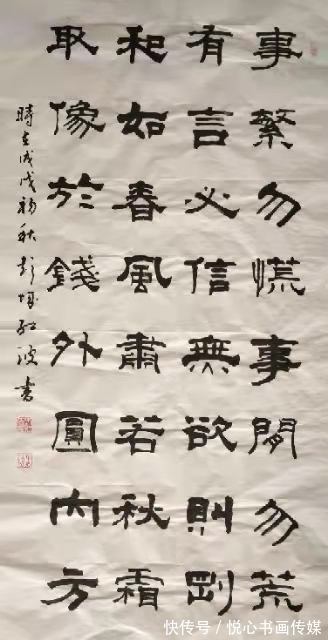 事繁勿慌事閒勿荒
有言必信無欲則剛
和如春風肅若秋霜
取像於錢外圓內方
時在戊戌初秋彭城紅波書
快传号 / 悦心书画传媒